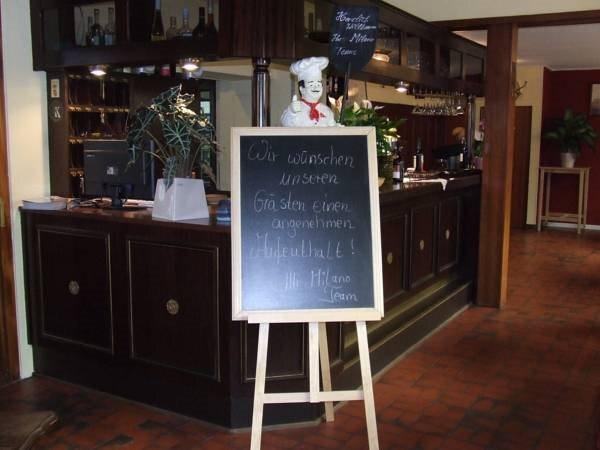 Herzlich
Willkommen
Ihr Milano
Team
Wir wünschen
unseren
Gästen einen
angenehmen
Aufenthalt!
Ihr Milano
Team